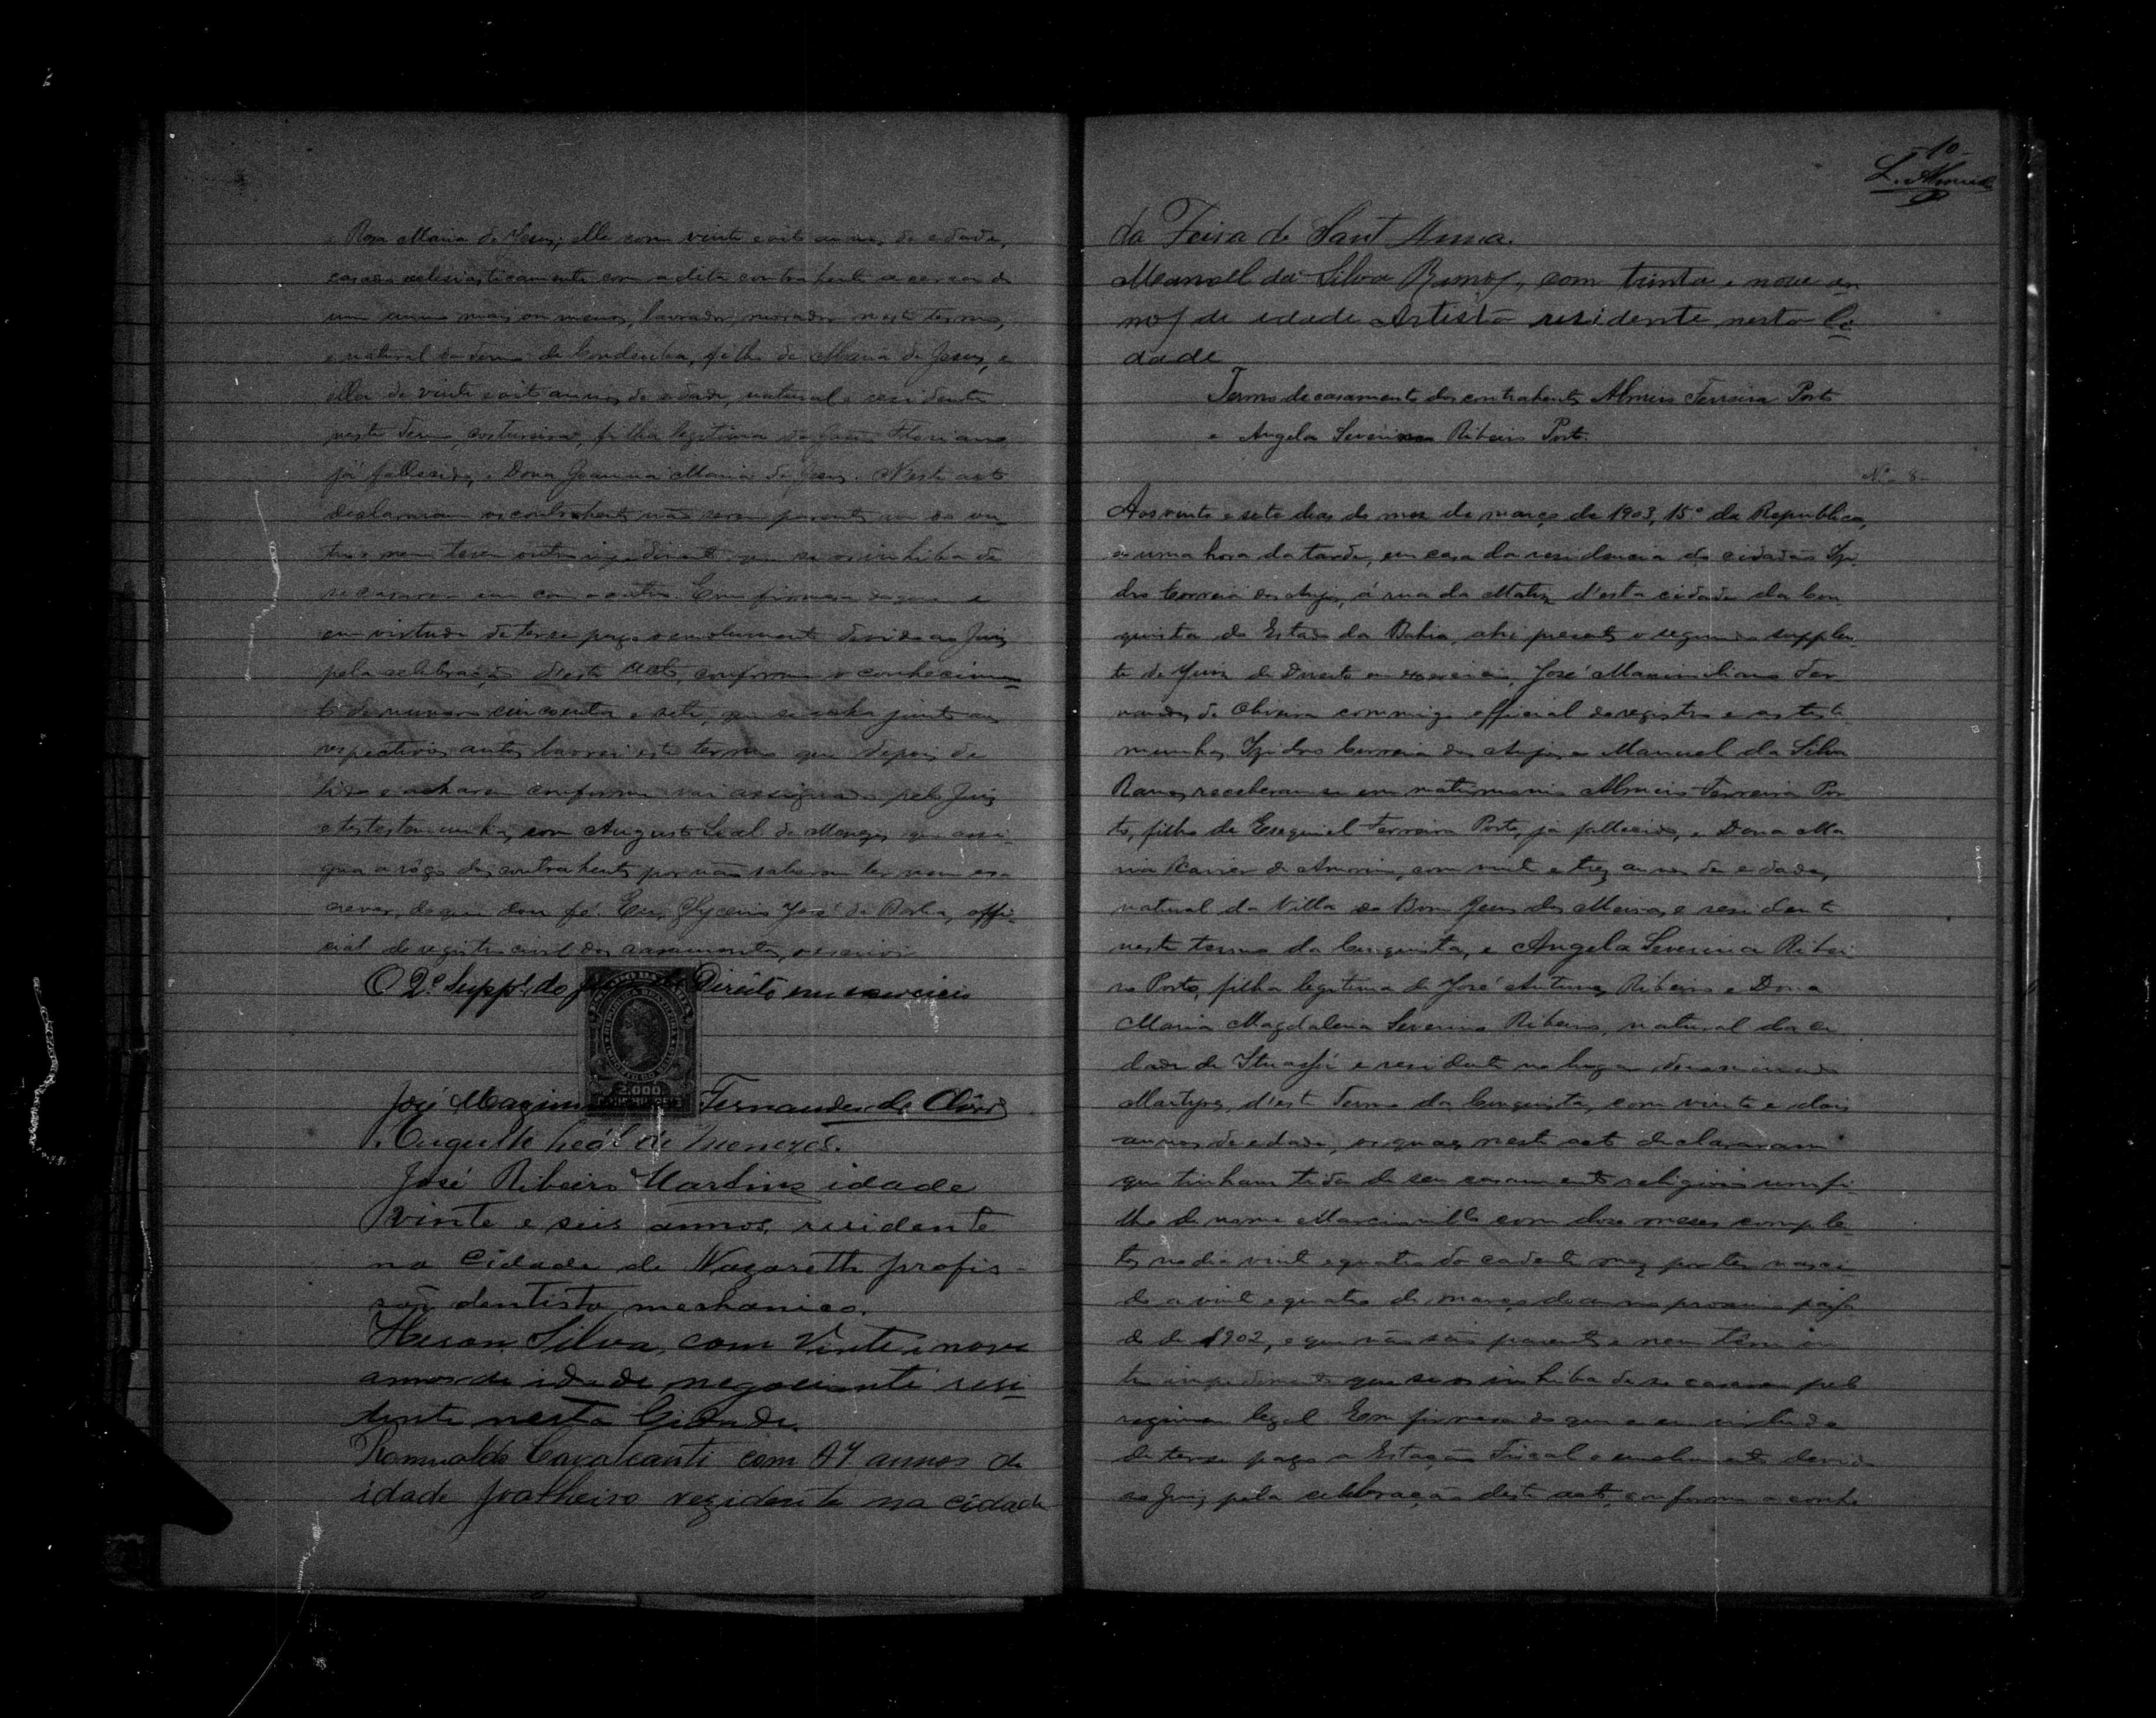 e Rosa Maria de Jesus; elle com vinte e oito annos de edade,
casado ecclesiasticamente com a dita contrahente a cerca de
um anno mais ou menos, lavrador, morador neste termo,
e natural do termo de Condeuba, filho de Maria de Jesus, e
ella de vinte e oito annos de edade, natural e residente
neste Termo, costureira, filha legitima de Floriano
já fallecido, e Dona Joanna Maria de Jesus. Neste acto
declararam os contrahentes não serem parentes um do ou-
tro e nem terem outro impedimento que se os inhiba de
se casarem um com o outro. Em firmeza do que e
em virtude de ter-se pago o emolumento devido ao Juiz
pela celebração d'este acto, conforme o conhecimen
to de numero cincoenta e sete, que se acha junto aos
respectivos autos lavrei este termo que depois de
lido e acharem conforme vai assignado pelo Juiz
e testemunhas, com Augusto Leal de Menezes que assi-
gna a rógo dos contrahentes por não saberem ler nem es-
crever, do que dou fé. Eu, Glycerio José da Rocha, offi-
cial do registro civil dos casamentos, o escrevi
O 2º Suppe. do Direito em exercicio
José Maxim Fernandes de Olivrª
Augusto Leál de Menezes.
José Ribeiro Martins idade
vinte e seis annos, residente
na Cidade de Nazareth profis-
são dentista mechanico.
Heron Silva, com Vinte e nove
annos de idade, negociante resi
dente nesta Cidade.
Romualdo Cavalcanti com 47 annos de
idade Joalheiro rezidente na cidade
-10-
L. Almeida
da Feira de Sant Anna.
Manoel da Silva Ramos, com trinta e nove an
nos de idade Artista residente nesta Ci
dade
Termo de casamento dos contrahentes Almiro Ferreira Porto
e Angela Severina Ribeiro Porto.
Nº 8-
Aos vinte e sete dias do mez de março de 1903, 15º da Republica,
a uma hora da tarde, em casa da residencia do cidadão Izi-
dro Correia dos Anjos, á rua da Matriz d'esta cidade da Con-
quista do Estado da Bahia, ahi presente o segundo supplen-
te de Juiz de Direito em exercicio, José Maximiliano Fer-
nandes de Oliveira commigo official do registro e as teste-
munhas Izidro Correia dos Anjos, e Manuel da Silva
Ramos, receberam-se em matrimonio Almiro Ferreira Por-
to, filho de Esequiel Ferreira Porto, já fallecido, e Dona Ma-
ria Xavier de Amorim, com vinte e trez annos de edade,
natural da Villa do Bom Jesus dos Meiras, e residente
neste termo da Conquista, e Angela Severina Ribei-
ro Porto, filha legitima de José Antunes Ribeiro e Dona
Maria Magdalena Severina Ribeiro, natural da ci-
dade de Ituassú e residente no lugar denominado
Martyres, d'este Termo da Conquista, com vinte e dois
annos de edade, os quaes neste acto declararam
que tinham tido de seu casamento religioso um fi-
lho de nome Marcionillo com doze meses comple-
tos no dia vinte e quatro do cadente mez por ter nasci-
do a vinte e quatro de março do anno proximo passa
do de 1902, e que não são parentes e nem têm ou-
tro impedimento que se os inhiba de se casarem pelo
regimen legal. Em firmeza do que e em virtude
de ter-se pago a Estação Fiscal o emolumento devido
ao Juiz pela celebração deste acto, conforme o conhe